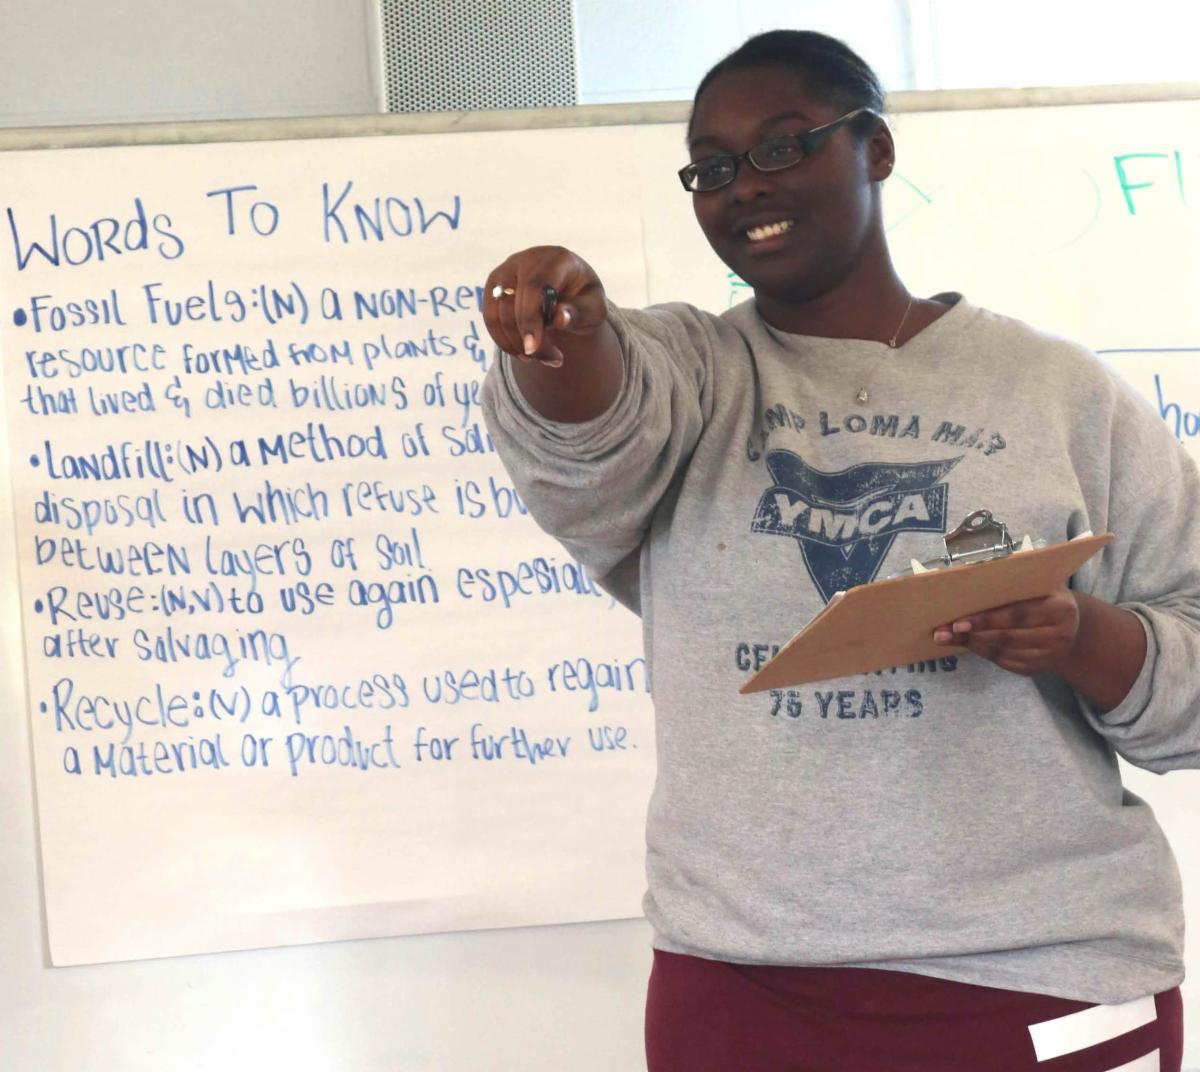 WORDS TO KNOW
•FOSSIL FUELS:(N) a NON-REN
resource formed from plants &
that lived & died billions of ye
•Landfill:(N) a Method of
disposal in which refuse is bu
between layers of soil.
•Reuse:(N,V) to use again
after salvaging
•Recycle:(V) a process used to regain
a Material or product for further use.
CAMP LOMA MAR
YMCA
75 YEARS
Fl
ho